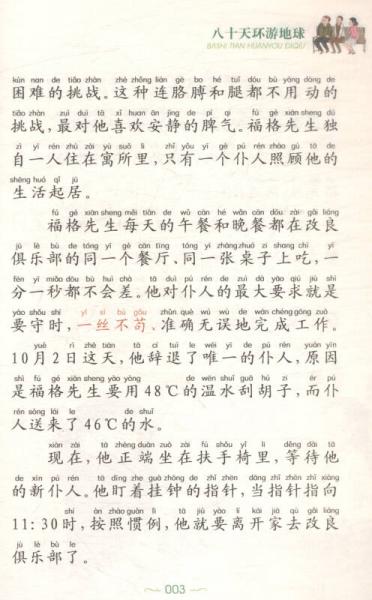 八十天环游地球
BASHI TIAN HUANYOU DIQIU
kùn nan de tiǎo zhàn zhè zhǒng lián gē bo hé tuǐ dōu bù yòng dòng de
困难的挑战。这种连胳膊和腿都不用动的
tiǎo zhàn zuì duì tā xǐ huan ān jìng de pí qi fú gé xiān sheng dú
挑战,最对他喜欢安静的脾气。福格先生独
zì yì rén zhù zài yù suǒ lǐ zhǐ yǒu yí gè pú rén zhào gù tā de
自一人住在寓所里,只有一个仆人照顾他的
shēng huó qǐ jū
生活起居。
fú gé xiān sheng měi tiān de wǔ cān hé wǎn cān dōu zài gǎi liáng
福格先生每天的午餐和晚餐都在改良
jù lè bù de tóng yí gè cān tīng tóng yì zhāng zhuō zi shang chī yì
俱乐部的同一个餐厅、同一张桌子上吃,一
fēn yì miǎo dōu bú huì chà tā duì pú rén de zuì dà yāo qiú jiù shì
分一秒都不会差。他对仆人的最大要求就是
yào shǒu shí yì sī bù gǒu zhǔn què wú wù de wán chéng gōng zuò
要守时,一丝不苟、准确无误地完成工作。
yuè rì zhè tiān tā cí tuì le wéi yī de pú rén yuán yīn
10月2日这天,他辞退了唯一的仆人,原因
shì fú gé xiān sheng yào yòng de wēn shuǐ guā hú zi ér pú
是福格先生要用48℃的温水刮胡子,而仆
rén sòng lái le de shuǐ
人送来了46℃的水。
xiàn zài tā zhèng duān zuò zài fú shǒu yǐ lǐ děng dài tā
现在,他正端坐在扶手椅里,等待他
de xīn pú rén tā dīng zhe guà zhōng de zhǐ zhēn dāng zhǐ zhēn zhǐ xiàng
的新仆人。他盯着挂钟的指针,当指针指向
shí àn zhào guàn lì tā jiù yào lí kāi jiā qù gǎi liáng
11:30时,按照惯例,他就要离开家去改良
jù lè bù le
俱乐部了。
003